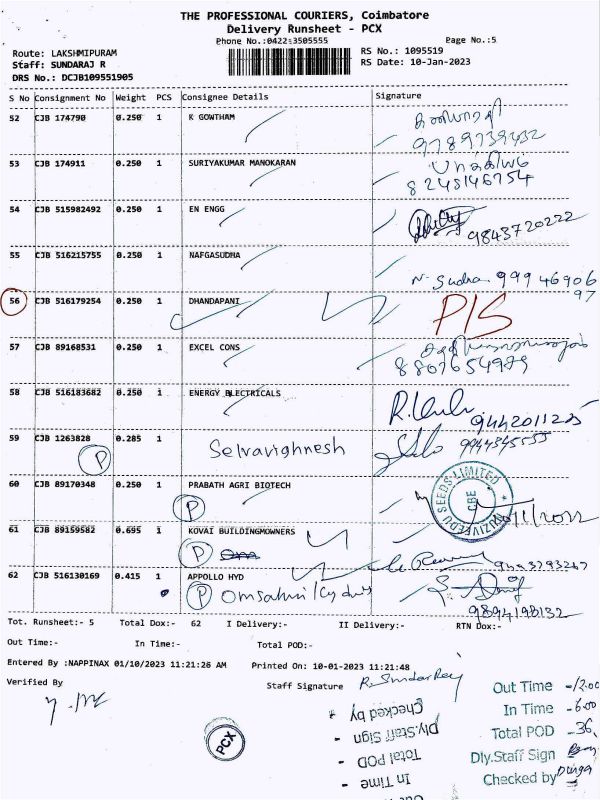 THE PROFESSIONAL COURIERS, Coimbatore
Delivery Runsheet - PCX
Phone No.:0422-3505555 Page No.:5
Route: LAKSHMIPURAM RS No.: 1095519
Staff: SUNDARAJ R RS Date: 10-Jan-2023
DRS No.: DCJB109551905
S No Consignment No Weight PCS Consignee Details Signature
52 CJB 174790 0.250 1 K GOWTHAM
9789739432
53 CJB 174911 0.250 1 SURIYAKUMAR MANOKARAN
8248146754
54 CJB 515982492 0.250 1 EN ENGG
9843720222
55 CJB 516215755 0.250 1 NAFGASUDHA
N. Sudha 999 46906
97
56 CJB 516179254 0.250 1 DHANDAPANI P/S
57 CJB 89168531 0.250 1 EXCEL CONS
8807654979
58 CJB 516183682 0.250 1 ENERGY ELECTRICALS
9442011225
59 CJB 1263828 0.285 1 Selvavighnesh
P
60 CJB 89170348 0.250 1 PRABATH AGRI BIOTECH
P
SEEDS LIMITED
CBE
61 CJB 89159582 0.695 1 KOVAI BUILDINGMOWNERS
P
62 CJB 516130169 0.415 1 APPOLLO HYD
P
9894198132
Tot. Runsheet:- 5 Total Dox:- 62 I Delivery:- II Delivery:- RTN Dox:-
Out Time:- In Time:- Total POD:-
Entered By :NAPPINAX 01/10/2023 11:21:26 AM Printed On: 10-01-2023 11:21:48
Verified By Staff Signature R. SundarRaj
Out Time -12.00
In Time -6.00
Total POD -36
Dly.Staff Sign
Checked by Durga
PCX
Checked by
Dly.Staff Sign -
Total POD -
In Time -